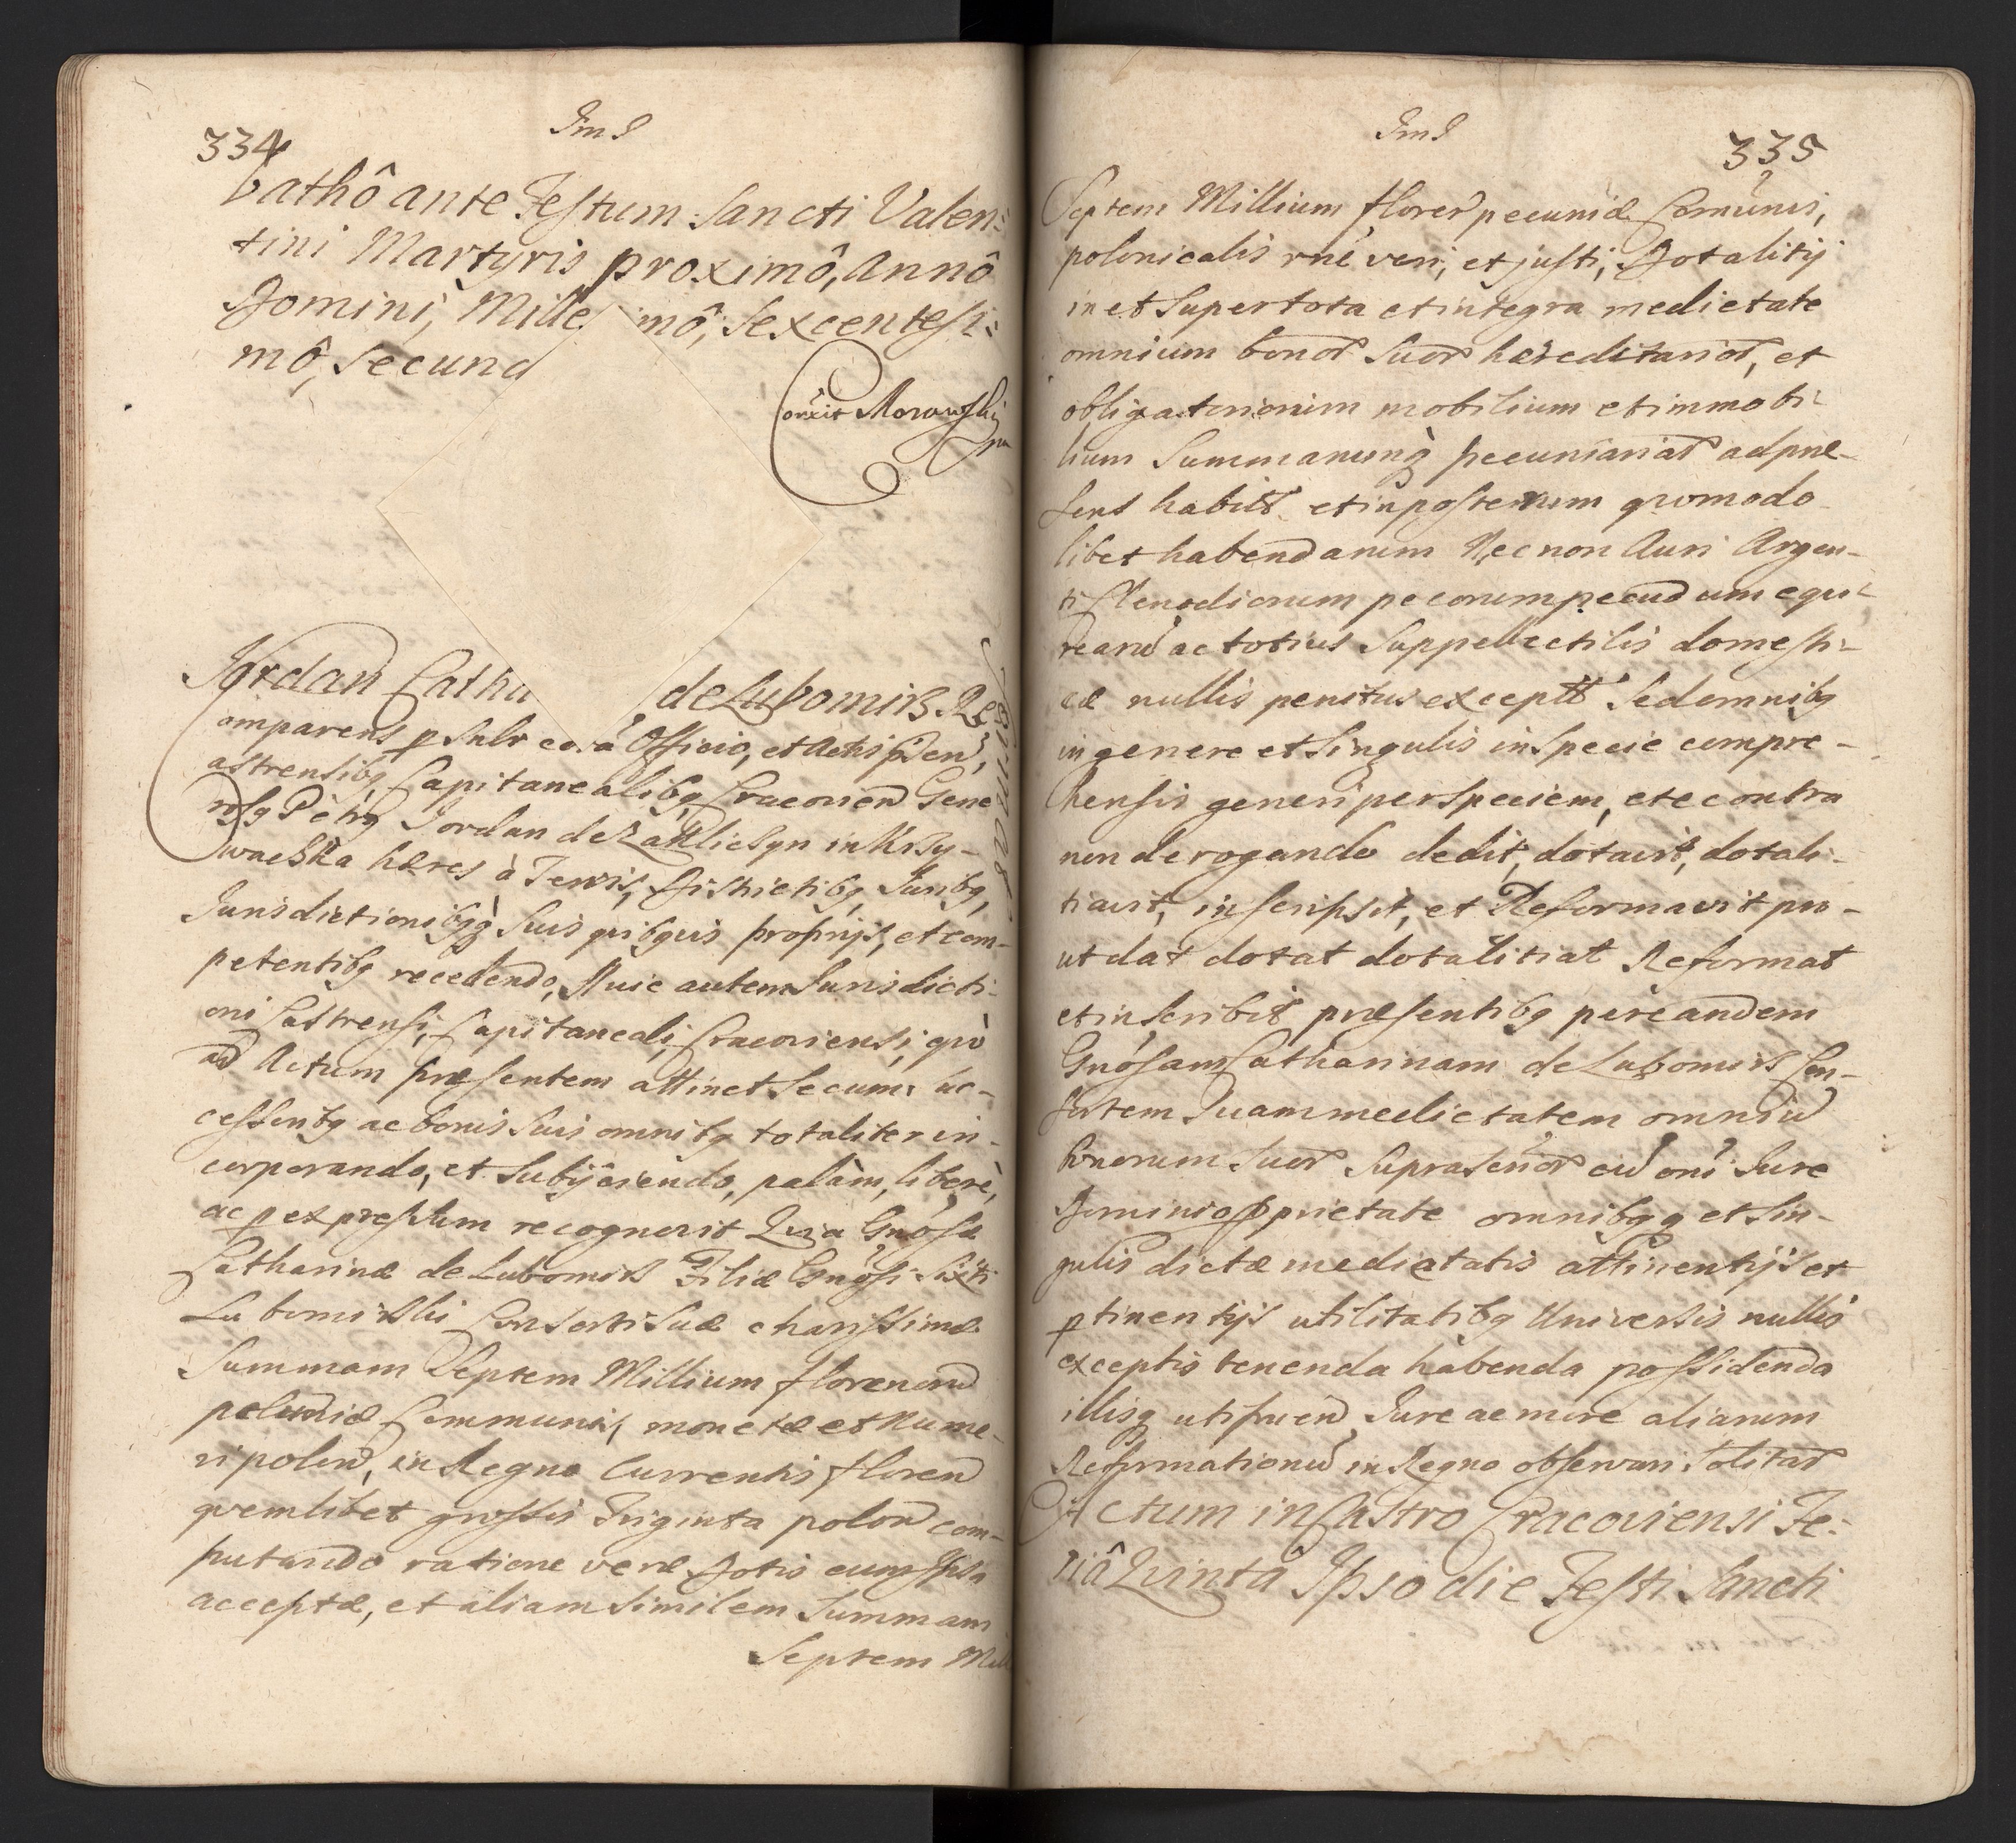 334
Jms
bathô ante Festum Sancti Valen:
tini Martyris proximô, Annô
Domini, Mille mô, Sexcentesi:
mô, Secund
Conxit Morawski
mp
Jordan Catha de Lubomirz Re
Comparens p Sulr corā Officio, et Actis psen,
astrensibq Capitanealibq Cracovien Gene
rosq Petrq Jordan de Zakliczyn in Krzy-
waczka hæres à Terris, Districtibq, Juribq,
Jurisdictionibqq suis quibqvis proprijs, et com-
petentibq recedendo, Huic autem Jurisdicti-
oni Castrensi, Capitaneali, Cracoviensi, qvò
ad Actum præsentem attinet se cum suc-
cessoribq ac bonis suis omnibq totaliter in-
corporando, et subijciendo, palàm, liberè,
ac p expressum recognovit Qvia Gnosæ
Catharinæ de Lubomirz Filiæ Gnosi Sixti
Lubomirski Consorti suæ charissimæ
Summam Septem Millium florenorum
pecuniæ Communis, monetæ et Nume-
ri polon, in Regno Currentis floren
qvemlibet grossis Triginta polon com-
putando ratione veræ Dotis cum Ipsa
acceptæ, et aliam similem Summam
Septem Mill
Jms
335
Septem Millium floren pecuniæ Comunis,
polonicalis rne veri, et justi, Dotalitij
in et super tota et integra medietate
omnium bonor suor hæreditarior, et
obligatoriorum mobilium et immobi-
lium Summarumq pecuniariar ad præ-
sens habit et in posterum qvomodo-
libet habendarum Nec non Auri Argen-
ti Clenodiorum pecorum pecudum equi-
rearu ac totius suppellectilis domesti-
cæ nullis penitus except sed omnibq
in genere et singulis in specie compre-
hensis generi per speciem, et e contra
non derogando dedit, dotavit, dotali-
tiavit, inscripsit, et Reformavit pro-
ut dat dotat dotalitiat Reformat
et inscribit præsentibq per eandem
Gnosam Catharinam de Lubomirz Con-
sortem suam medietatem omniu
bonorum suor suprascrior cu oni Jure
Dominio pprietate omnibqq et sin-
gulis dictæ medietatis attinentijs et
ptinentijs utilitatibq Universis nullis
exceptis tenenda habenda possidenda
illisq utifruend Jure ac more aliarum
Reformationu in Regno observari solitar
Actum in Castro Cracoviensi Fe:
riâ Qvintâ Ipso die Festi Sancti